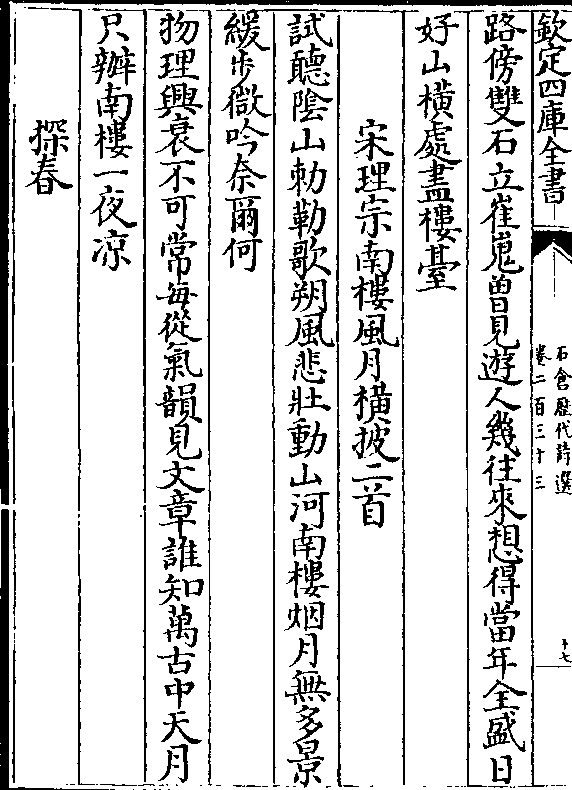 欽定四庫全書
石倉歷代詩選
卷二百三十三
十七
路傍雙石立崔嵬曽見遊人幾往來想得當年全盛日
好山橫處盡樓臺
宋理宗南樓風月橫披二首
試聽陰山勅勒歌朔風悲壯動山河南樓烟月無多景
緩步微吟奈爾何
物理興衰不可常每從氣韻見文章誰知萬古中天月
只辦南樓一夜凉
探春